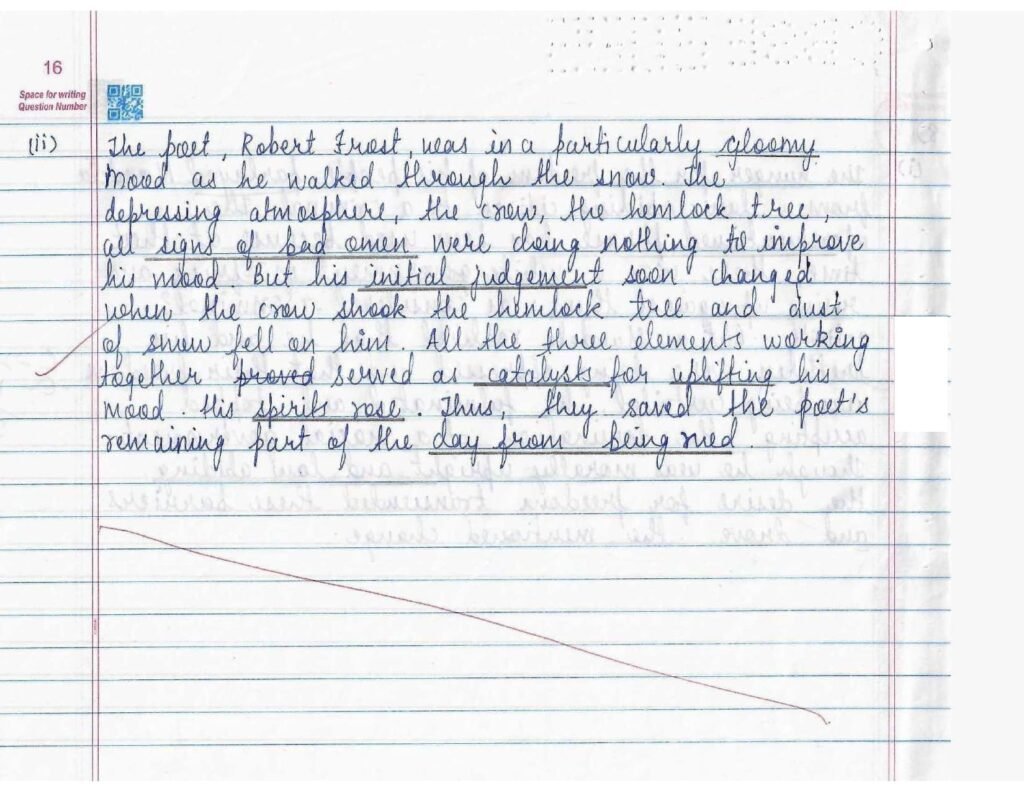 16
Space for writing
Question Number
(ii) The poet, Robert Frost, was in a particularly gloomy
mood as he walked through the snow. The
depressing atmosphere, the crow, the hemlock tree,
all signs of bad omen were doing nothing to improve
his mood. But his initial judgement soon changed
when the crow shook the hemlock tree and dust
of snow fell on him. All the three elements working
together proved served as catalysts for uplifting his
mood. His spirits rose. Thus, they saved the poet's
remaining part of the day from being rued.